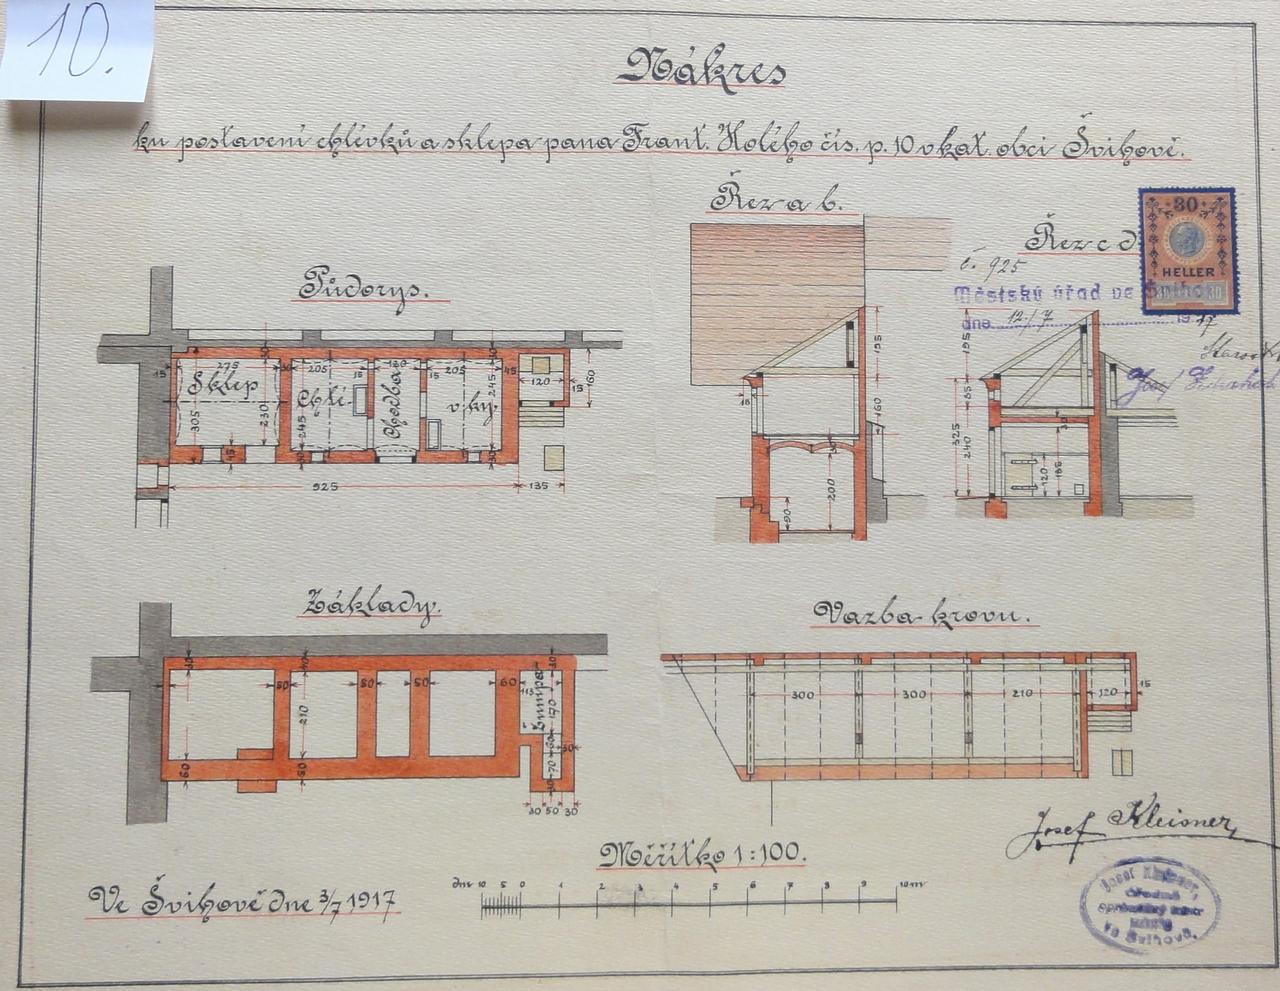 10.
Nákres
ku postavení chlévků a sklepa pana Frant. Holého čís. p. 10 v kat. obci Švihově.
Řez a b.
Řez c d
30
HELLER
30 30
č. 925
Městský úřad ve Švihově
dne 12/7 1917
Josef
Půdorys.
Sklep
Chlí
Chodba
vky
15 275 30 205 15 130 15 205 45 120 15 160
305 230 245 245 30 30 15
925 135
195 160 15 200 90
195 85 325 240 120 135
Základy.
Žumpa
60 50 210 50 50 50 60 115 170 60 70 30
30 50 30
Vazba krovu.
300 300 210 120 15
Josef Kleisner,
Měřítko 1:100.
dm 10 5 0 1 2 3 4 5 6 7 8 9 10 m
Ve Švihově dne 3/7 1917
Josef Kleisner,
úředně
oprávněný
ve Švihově.